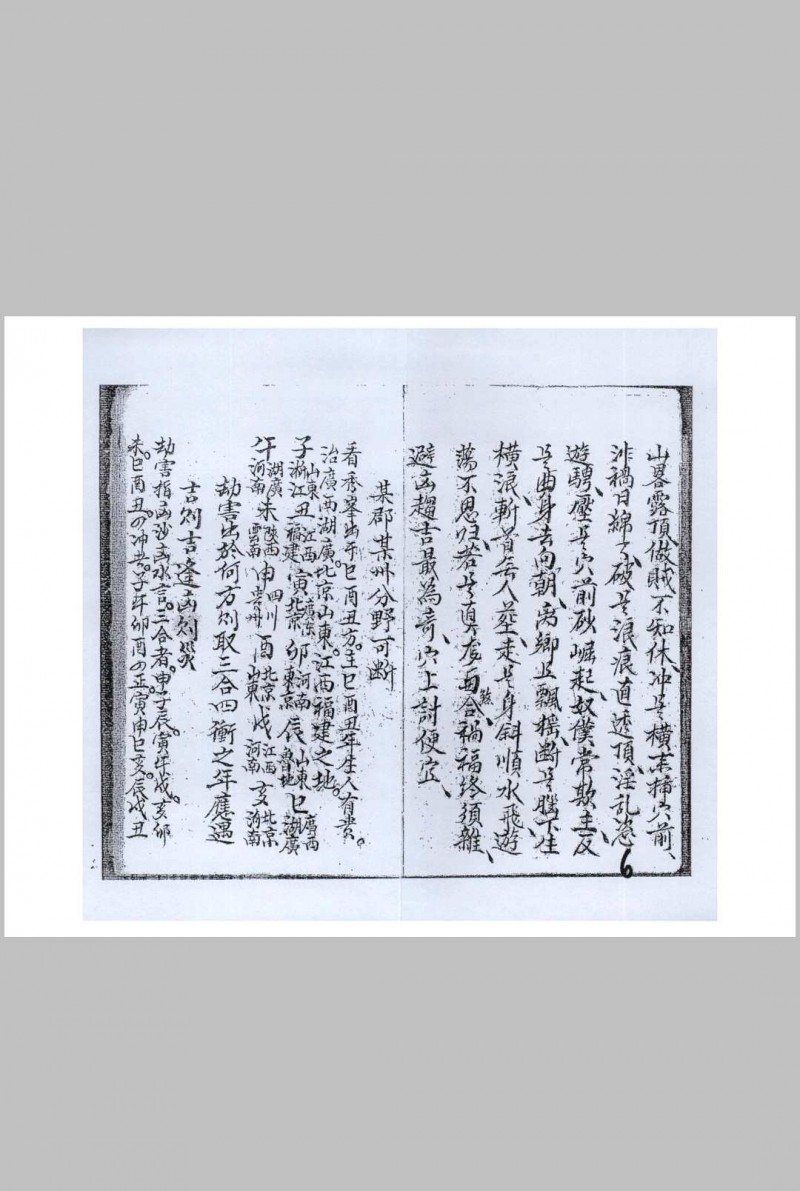 山畧露頂、做賊不知休、冲是橫來插穴前、
非禍日綿々、破是浪痕直透頂、淫乱急
遊騁、壓是穴前砂崛起、奴僕常欺主、反
是曲身去向朝、离鄉且飄摇、断是腦下生
橫浪、斬首去人塟、走是身斜順水飛、遊
蕩不思归、若是真应面合、禍福终須難、
避凶趨吉最為奇、穴上討便宜、
6
某郡某州分野可断
看秀峯出于巳酉丑方。主巳酉丑年生人有貴。
治廣西湖廣。北京山東。江西福建之地。
子山東浙江丑江西福建寅廣东北京卯河南東京辰山東魯地巳廣西湖廣
午湖廣河南未陝西雲南申四川贵州酉北京山東戌江西河南亥北京河南
劫害出於何方則取三合四衝之年應遇
吉則吉逢凶則災
劫害指凶沙凶水言。三合者。申子辰。寅午戌。亥卯
未。巳酉丑。四冲者。子午卯酉四正。寅申巳亥。辰戌丑